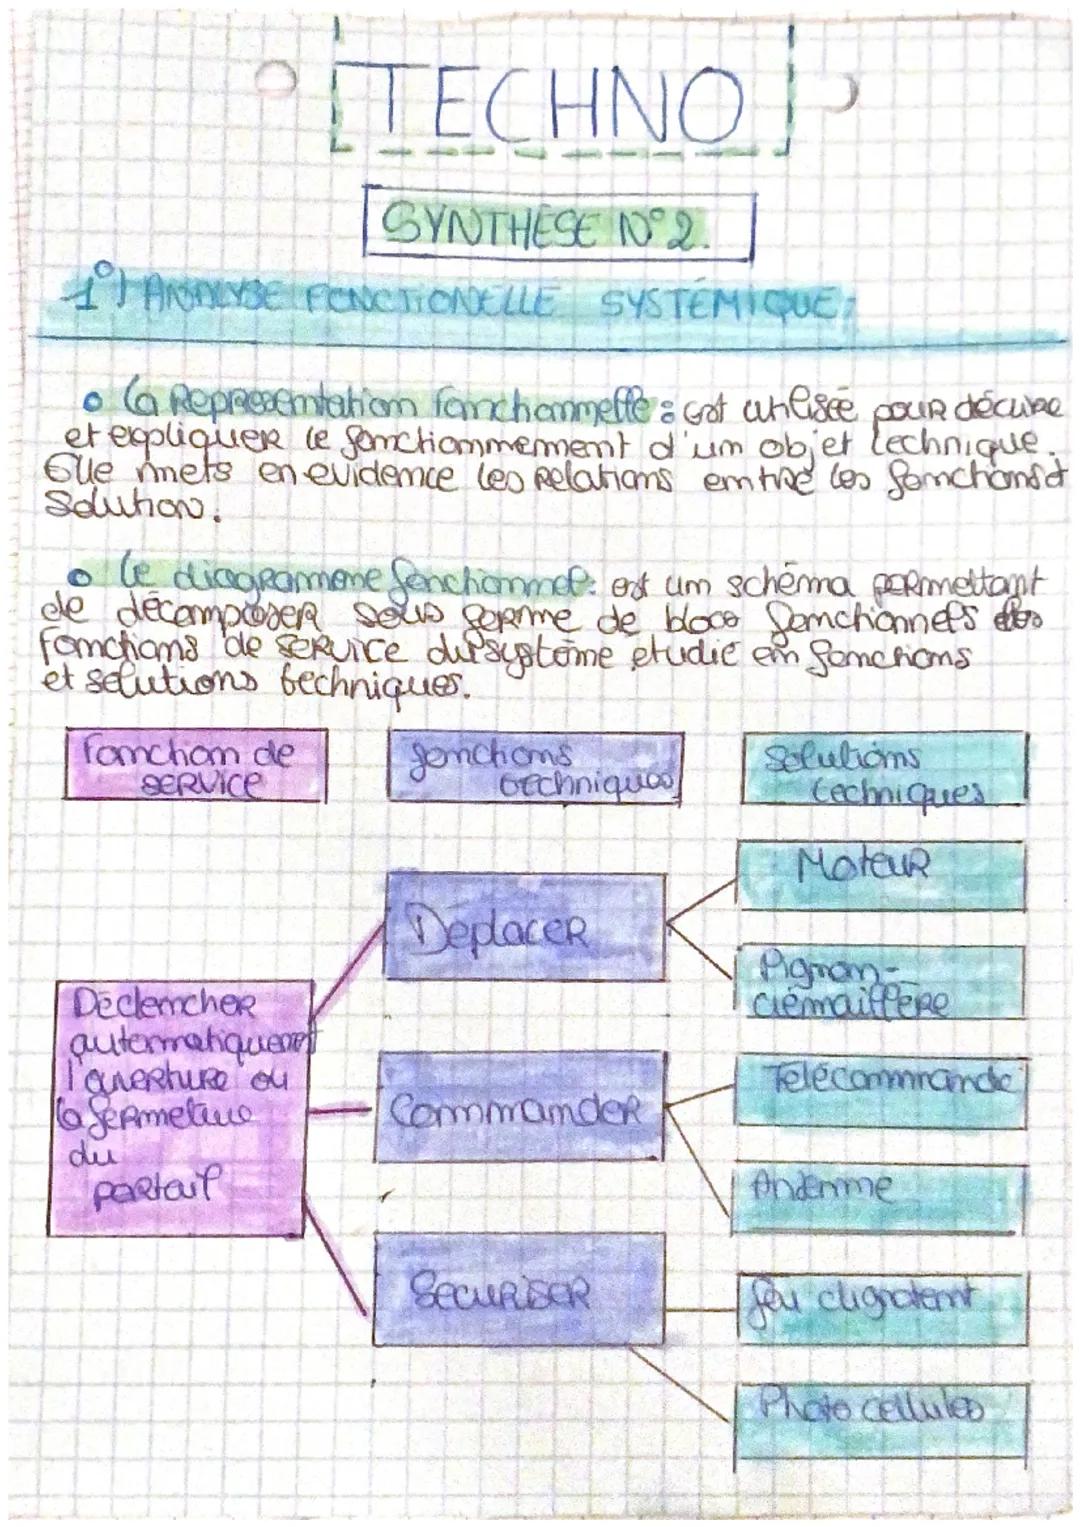 TECHNO
SYNTHESE N°2.
1°) ANALYSE FONCTIONELLE SYSTÉMIQUE:
• La Representation fonctionnelle : est utilisée pour décrire
et expliquer le fonctionnement d'un objet technique.
Elle mets en evidence les relations entre les fonctions et
solution.
• Le diagramme fonctionnel: est um schéma permettant
de décomposer sous forme de blocs fonctionnels des
fonctions de service du système etudié en fonctions
et solutions techniques.
fonction de
service
fonctions
techniques
solutions
techniques
Moteur
Déplacer
Pignon-
crémaillère
Déclencher
automatiquement
l'ouverture ou
la fermeture
du
portail
Commander
Télécommande
Antenne
Securiser
feu clignotant
Photo cellules